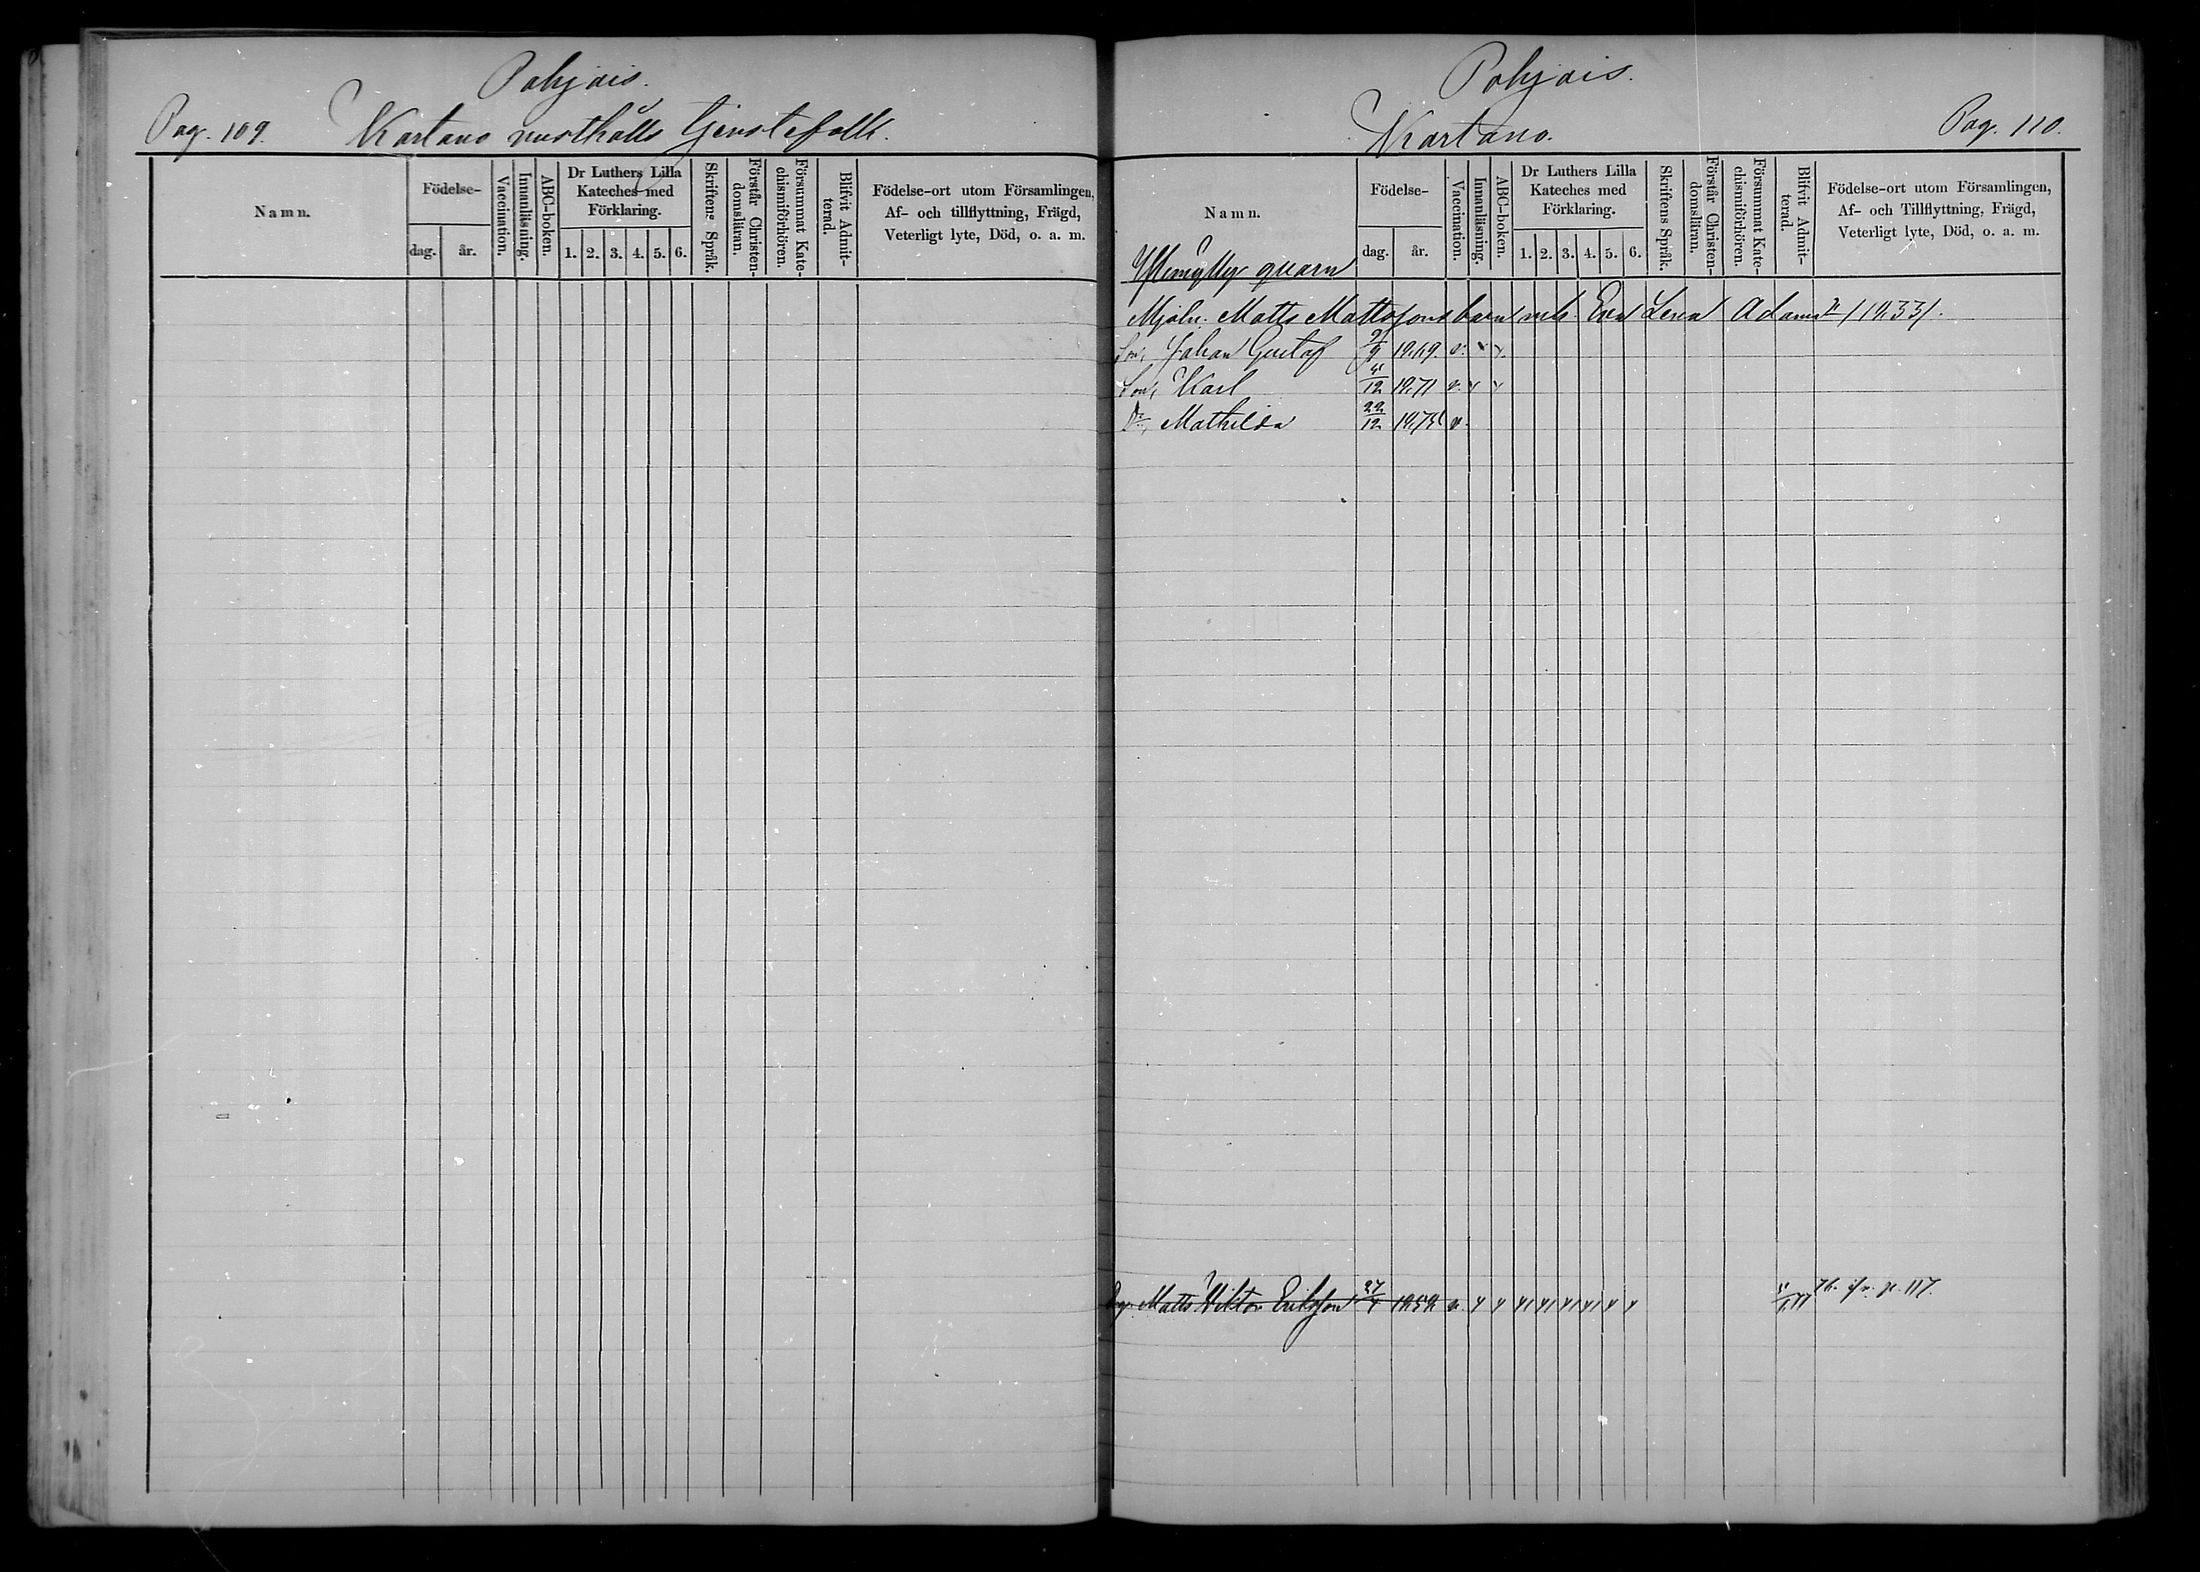 Pohjois.
Pag. 109. Kartano rusthålls tjenstefolk.
Namn.
Födelse-
dag. år.
Vaccination.
Innanläsning.
ABC-boken.
Dr Luthers Lilla
Kateches med
Förklaring.
1. 2. 3. 4. 5. 6.
Skriftens Språk.
Förstår Christen-
domsläran.
Försummat Kate-
chismiförhören.
Blifvit Admit-
terad.
Födelse-ort utom Församlingen,
Af- och tillflyttning, Frägd,
Veterligt lyte, Död, o. a. m.
Pohjois.
Kartano. Pag. 110.
Namn.
Födelse-
dag. år.
Vaccination.
Innanläsning.
ABC-boken.
Dr Luthers Lilla
Kateches med
Förklaring.
1. 2. 3. 4. 5. 6.
Skriftens Språk.
Förstår Christen-
domsläran.
Försummat Kate-
chismiförhören.
Blifvit Admit-
terad.
Födelse-ort utom Församlingen,
Af- och Tillflyttning, Frägd,
Veterligt lyte, Död, o. a. m.
quarn
Mjöln. Matts Mattssons barn Eva Lena Adamsd /1833/.
Son, Johan Gustaf 1869 v.
Son, Karl 1871 v.
Dr, Mathilda 22/12 v.
Matts Viktor Eriksson 27/4 1859 v. p. 117.